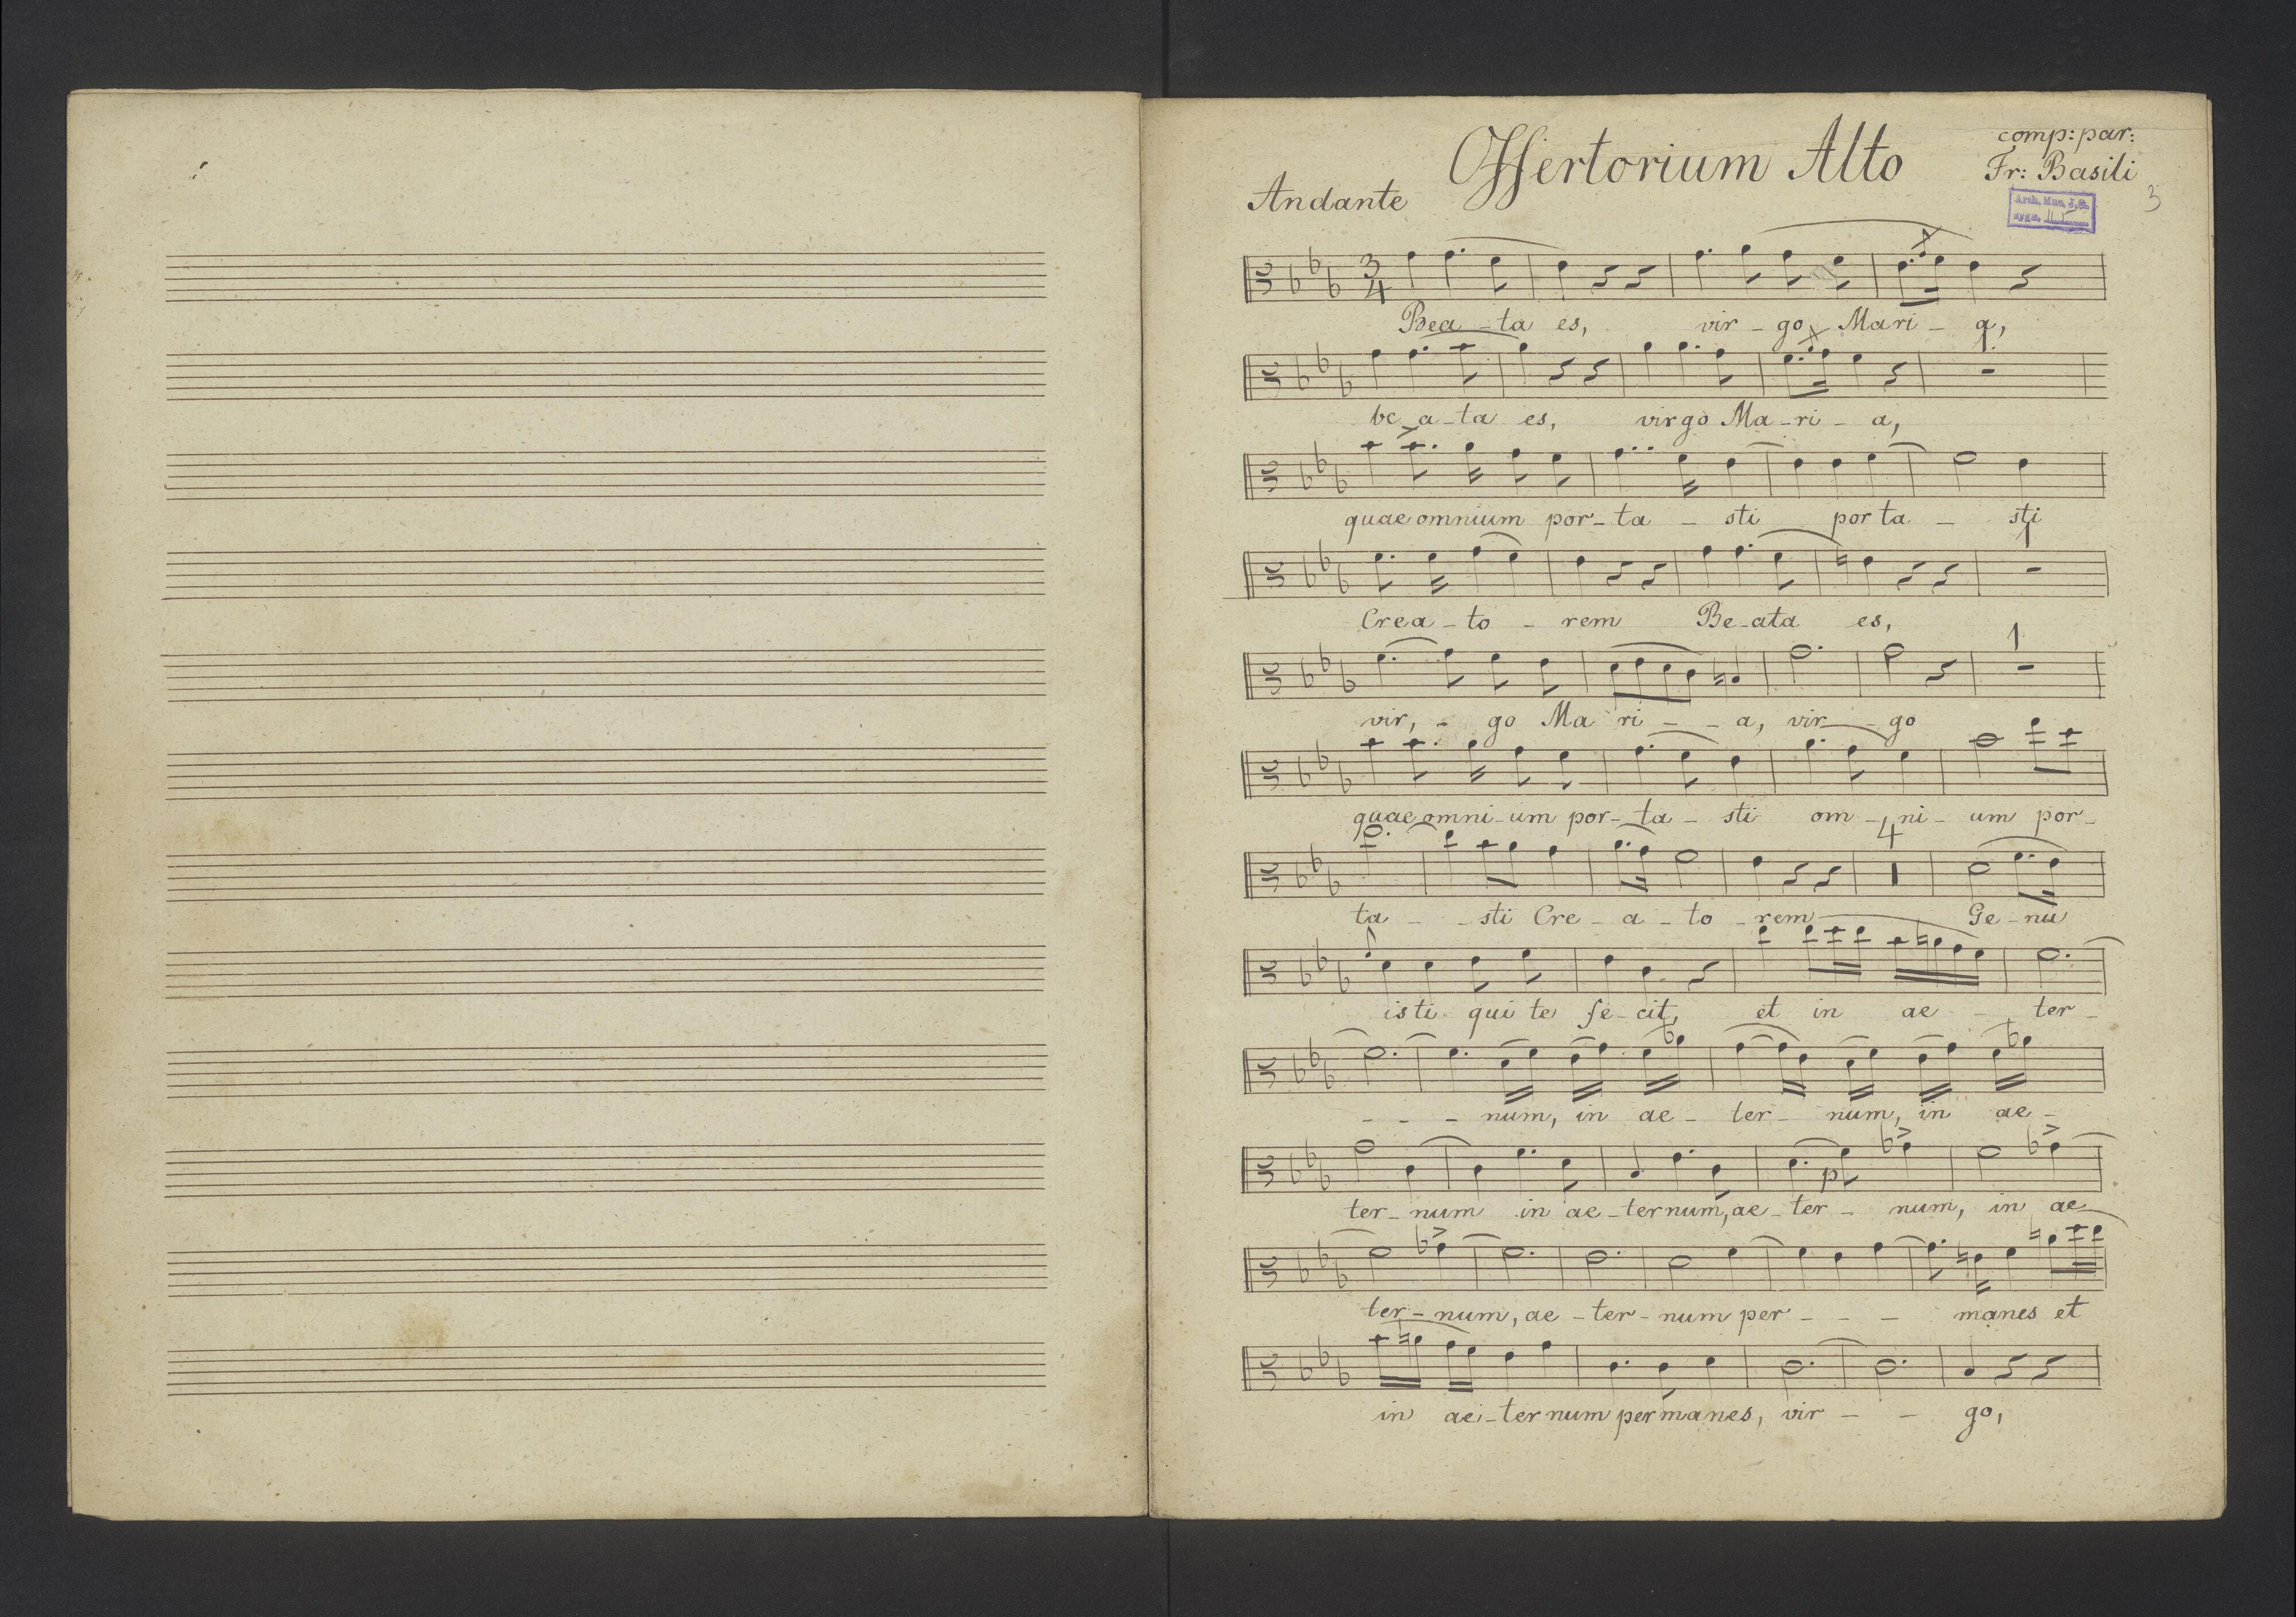 Offertorium Alto
comp: par:
Fr: Basili
Andante
Arch. Mus. J.G.
sygn.
3
3
4
Bea - ta es, vir - go Mari - a,
1
be - a - ta es, virgo Ma - ri - a,
quae omnium por - ta - sti por ta - sti
1
Crea - to - rem Be - ata es,
1
vir, - go Ma ri - - a, vir - go
quae omni - um por - ta - sti om - ni - um por -
4
ta - - sti Cre - a - to - rem Ge - nu
isti qui te fe - cit, et in ae - ter -
- - - num, in ae - ter - num, in ae -
p
ter - num in ae - ternum, ae - ter - num, in ae
ter - num, ae - ter - num per - - - manes et
in aei - ter num permanes, vir - - go,